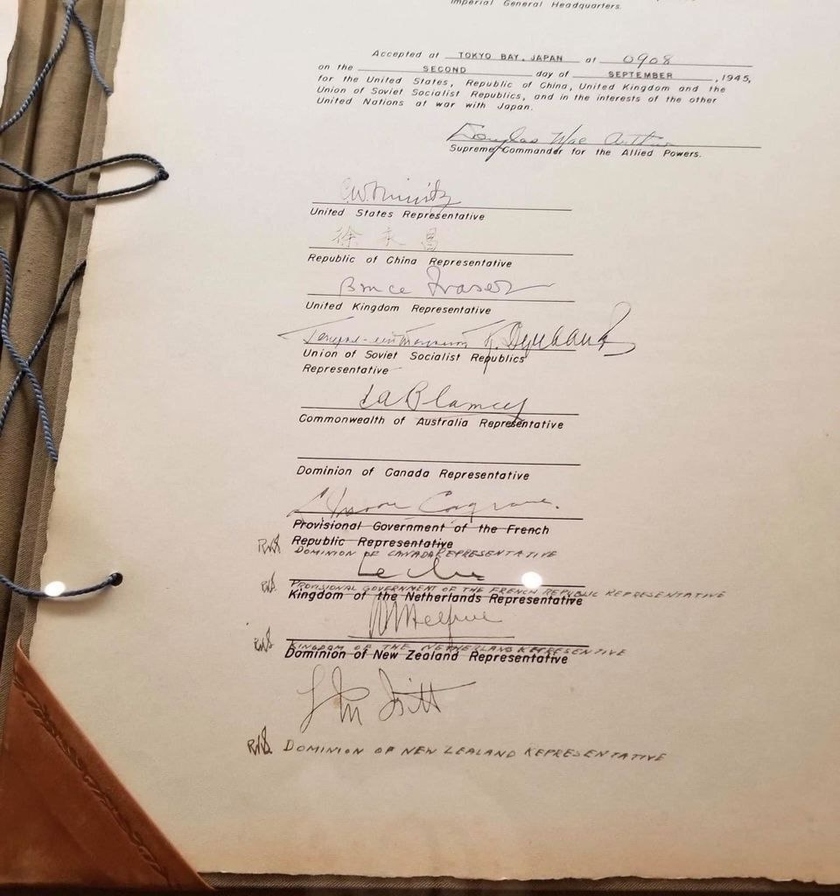 Imperial General Headquarters.
Accepted at TOKYO BAY, JAPAN at 0908
on the SECOND day of SEPTEMBER , 1945,
for the United States, Republic of China, United Kingdom and the
Union of Soviet Socialist Republics, and in the interests of the other
United Nations at war with Japan.
Douglas MacArthur
Supreme Commander for the Allied Powers.
C.W. Nimitz
United States Representative
徐永昌
Republic of China Representative
Bruce Fraser
United Kingdom Representative
Union of Soviet Socialist Republics
Representative
T.A. Blamey
Commonwealth of Australia Representative
Dominion of Canada Representative
L. Moore Cosgrave.
Provisional Government of the French
Republic Representative
DOMINION OF CANADA REPRESENTATIVE
Leclerc
PROVISIONAL GOVERNMENT OF THE FRENCH REPUBLIC REPRESENTATIVE
Kingdom of the Netherlands Representative
Helfrich
KINGDOM OF THE NETHERLANDS REPRESENTATIVE
Dominion of New Zealand Representative
L M Isitt
DOMINION OF NEW ZEALAND REPRESENTATIVE